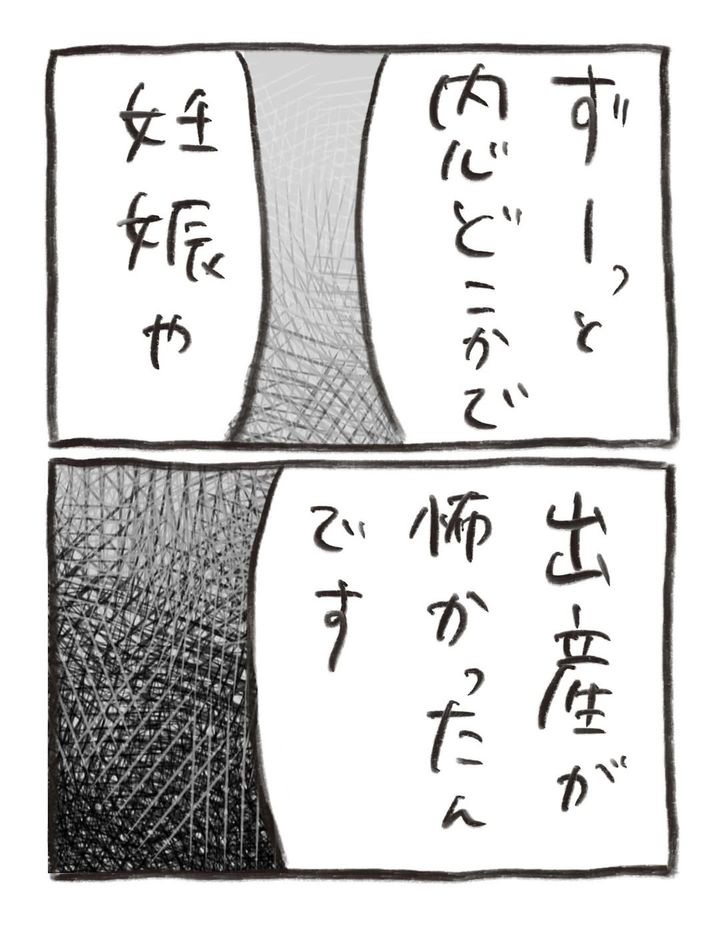 ずーっと
内心どこかで
妊娠や
出産が
怖かったん
です